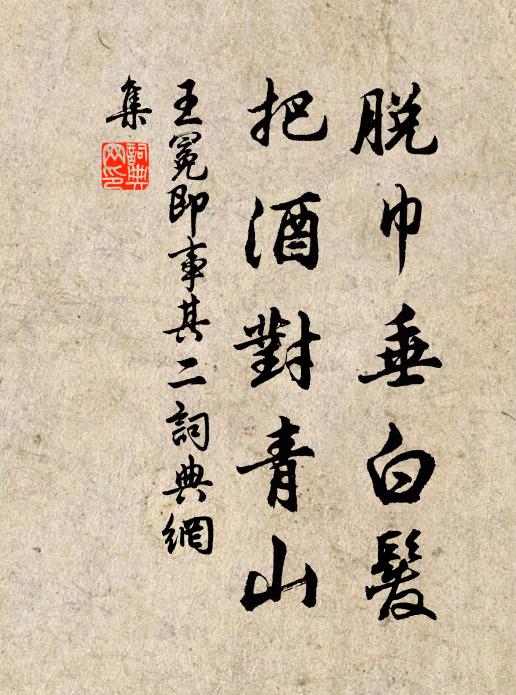 脫巾垂白髮
把酒對青山
王冕即事其二詞典網
集
詞典網印